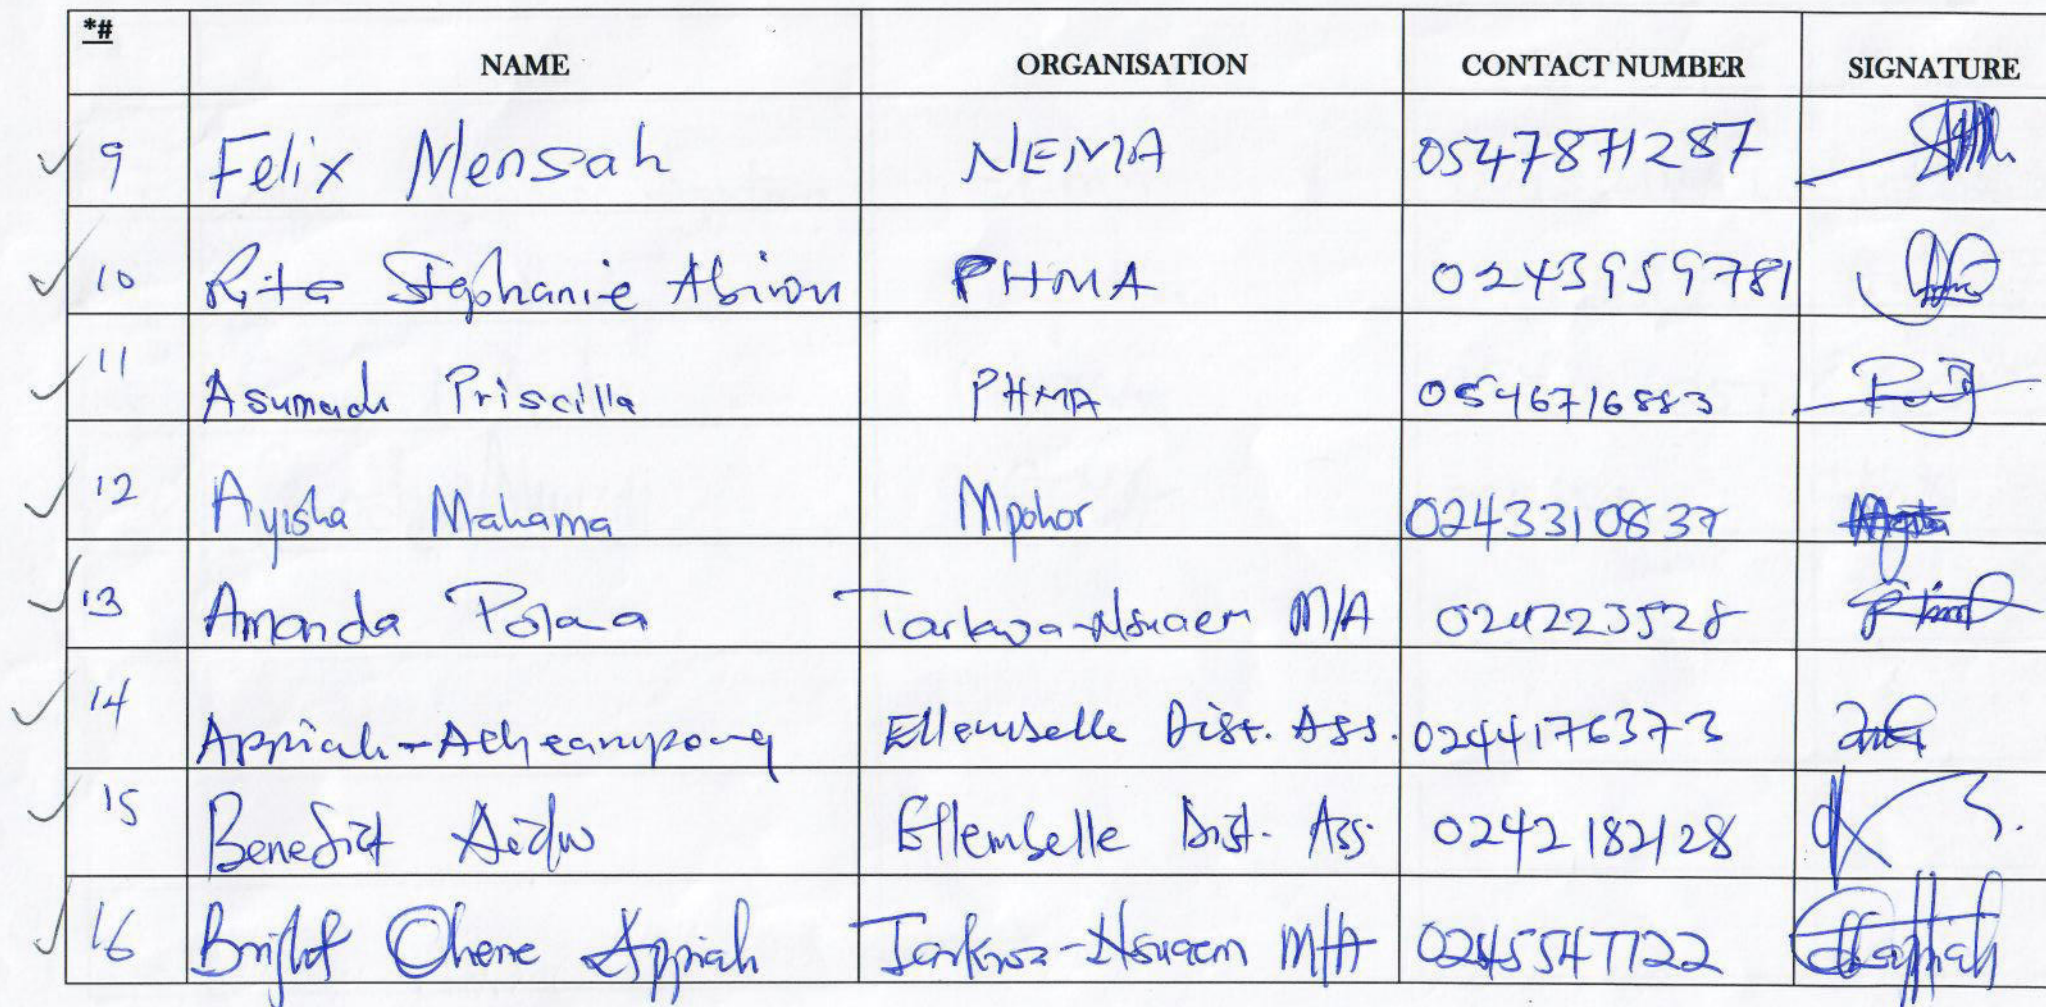 *# NAME ORGANISATION CONTACT NUMBER SIGNATURE
9 Felix Mensah NEMA 0547871287
10 Rita Stephanie PHMA 0243959781
11 Asumadu Priscilla PHMA 0546716883
12 Ayisha Mahama Mpohor 0243310837
13 Amanda Tarkwa-Nsuaem M/A 024223528
14 Appiah-Acheampong Ellembelle Dist. Ass. 0244176373
15 Benedict Aidu Ellembelle Dist. Ass. 0242182128
16 Bright Ohene Appiah Tarkwa-Nsuaem M/A 0245547722